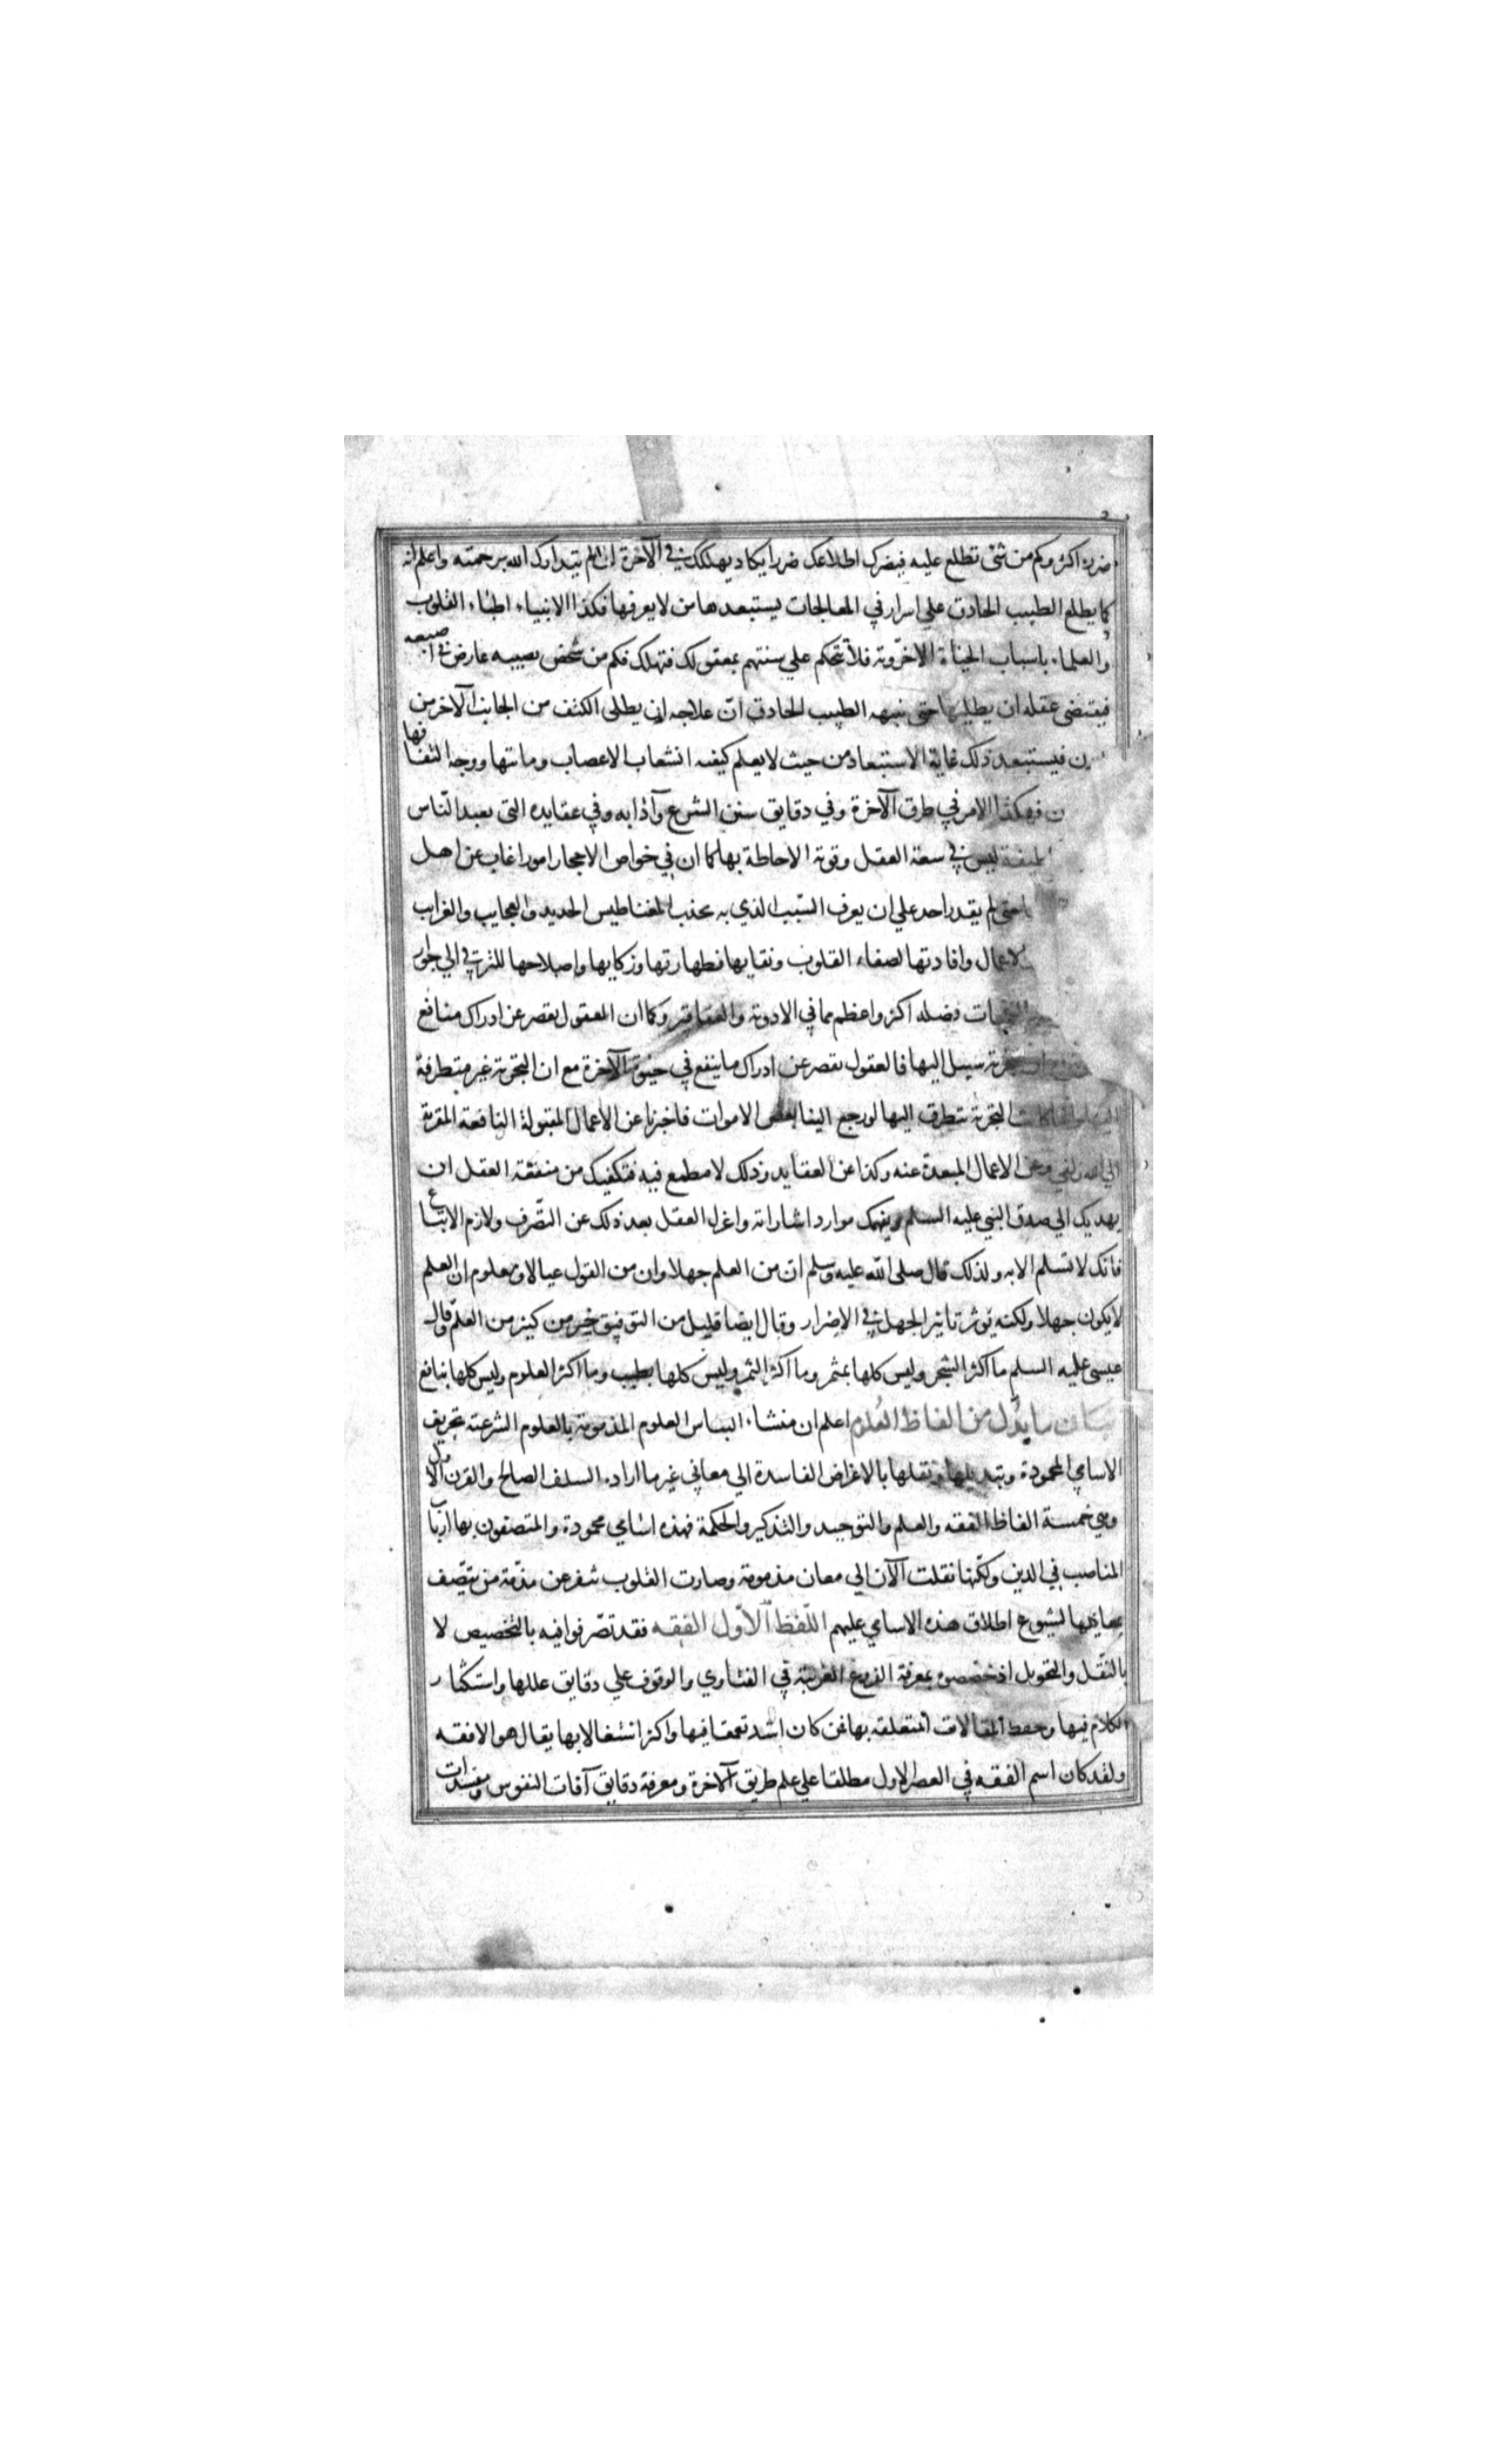 ضرره اكثر وكم من شئ تطلع عليه فيضرك اطلاعك ضررا يكاد يهلكك في الآخرة ان لم يتداركك الله برحمته واعلم انه
كما يطلع الطبيب الحاذق علي اسرار في المعالجات يستبعدها من لا يعرفها فكذا الانبياء اطباء القلوب
والعلماء باسباب الحياة الاخروية فلا تتحكم علي سنتهم بمعقولك فتهلك فكم من شخص يصيبه عارض في اصبعه
فيقتضي عقله ان يطليها حتى ينبهه الطبيب الحاذق انّ علاجه ان يطلى الكتف من الجانب الآخر من
فيستبعد ذلك غاية الاستبعاد من حيث لا يعلم كيفية انشعاب الاعصاب ومنابتها ووجه التفافها
فهكذا الامر في طرق الآخرة وفي دقايق سنن الشرع وآدابه وفي عقايده التى تعبد النّاس
ليس في سعة العقل وقوته الاحاطة بها كما ان في خواص الاحجار امورا غاب عن اهل
حتى لم يقدر احد علي ان يعرف السّبب الذي به يجذب المغناطيس الحديد والعجايب والغرايب
الاعمال وافادتها لصفاء القلوب ونقايها وطهارتها وزكايها واصلاحها للترقي الي جوار
فضله اكثر واعظم مما في الادوية والعقاقير وكما ان العقول تقصر عن ادراك منافع
سبيل اليها فالعقول تقصر عن ادراك ما ينفع في حيوة الآخرة مع ان التجربة غير متطرقة
التجربة تتطرق اليها لو رجع الينا بعض الاموات فاخبرنا عن الاعمال المقبولة النافعة المقربة
الي الله زلفي وعن الاعمال المبعدة عنه وكذا عن العقايد وذلك لا مطمع فيه فتكفيك من منفعة العقل ان
يهديك الي صدق النبي عليه السلم ويفهمك موارد اشاراته واعزل العقل بعد ذلك عن التّصرف ولازم الاتباع
فانك لا تسلم الا به ولذلك قال صلى الله عليه وسلم انّ من العلم جهلا وان من القول عيالا ومعلوم ان العلم
لا يكون جهلا ولكنه يؤثر تاثير الجهل في الاضرار وقال ايضا قليل من التوفيق خير من كثير من العلم وقال
عيسى عليه السلم ما اكثر الشجر وليس كلها بمثمر وما اكثر الثمر وليس كلها بطيب وما اكثر العلوم وليس كلها بنافع
بيان ما بدّل من الفاظ العُلوم اعلم ان منشاء التباس العلوم المذمومة بالعلوم الشرعية تحريف
الاسامي المحمودة وتبديلها ونقلها بالاغراض الفاسدة الي معاني غير ما اراده السلف الصالح والقرن الاول
وهي خمسة الفاظ الفقه والعلم والتوحيد والتذكير والحكمة فهذه اسامي محمودة والمتصفون بها ارباب
المناصب في الدين ولكنّها نقلت الآن الي معان مذمومة وصارت القلوب تنفر عن مذمّة من يتّصف
بمعانيها لشيوع اطلاق هذه الاسامي عليهم اللّفظ الاوّل الفقه فقد تصّرفوا فيه بالتخصيص لا
بالنّقل والتحويل اذ خصصوه بمعرفة الفروع الغريبة في الفتاوي والوقوف علي دقايق عللها واستكثار
الكلام فيها وحفظ المقالات المتعلقه بها فمن كان اشد تعمقا فيها واكثر اشتغالا بها يقال هو الافقه
ولقد كان اسم الفقه في العصر الاول مطلقا علي علم طريق الآخرة ومعرفة دقايق آفات النفوس ومفسدات